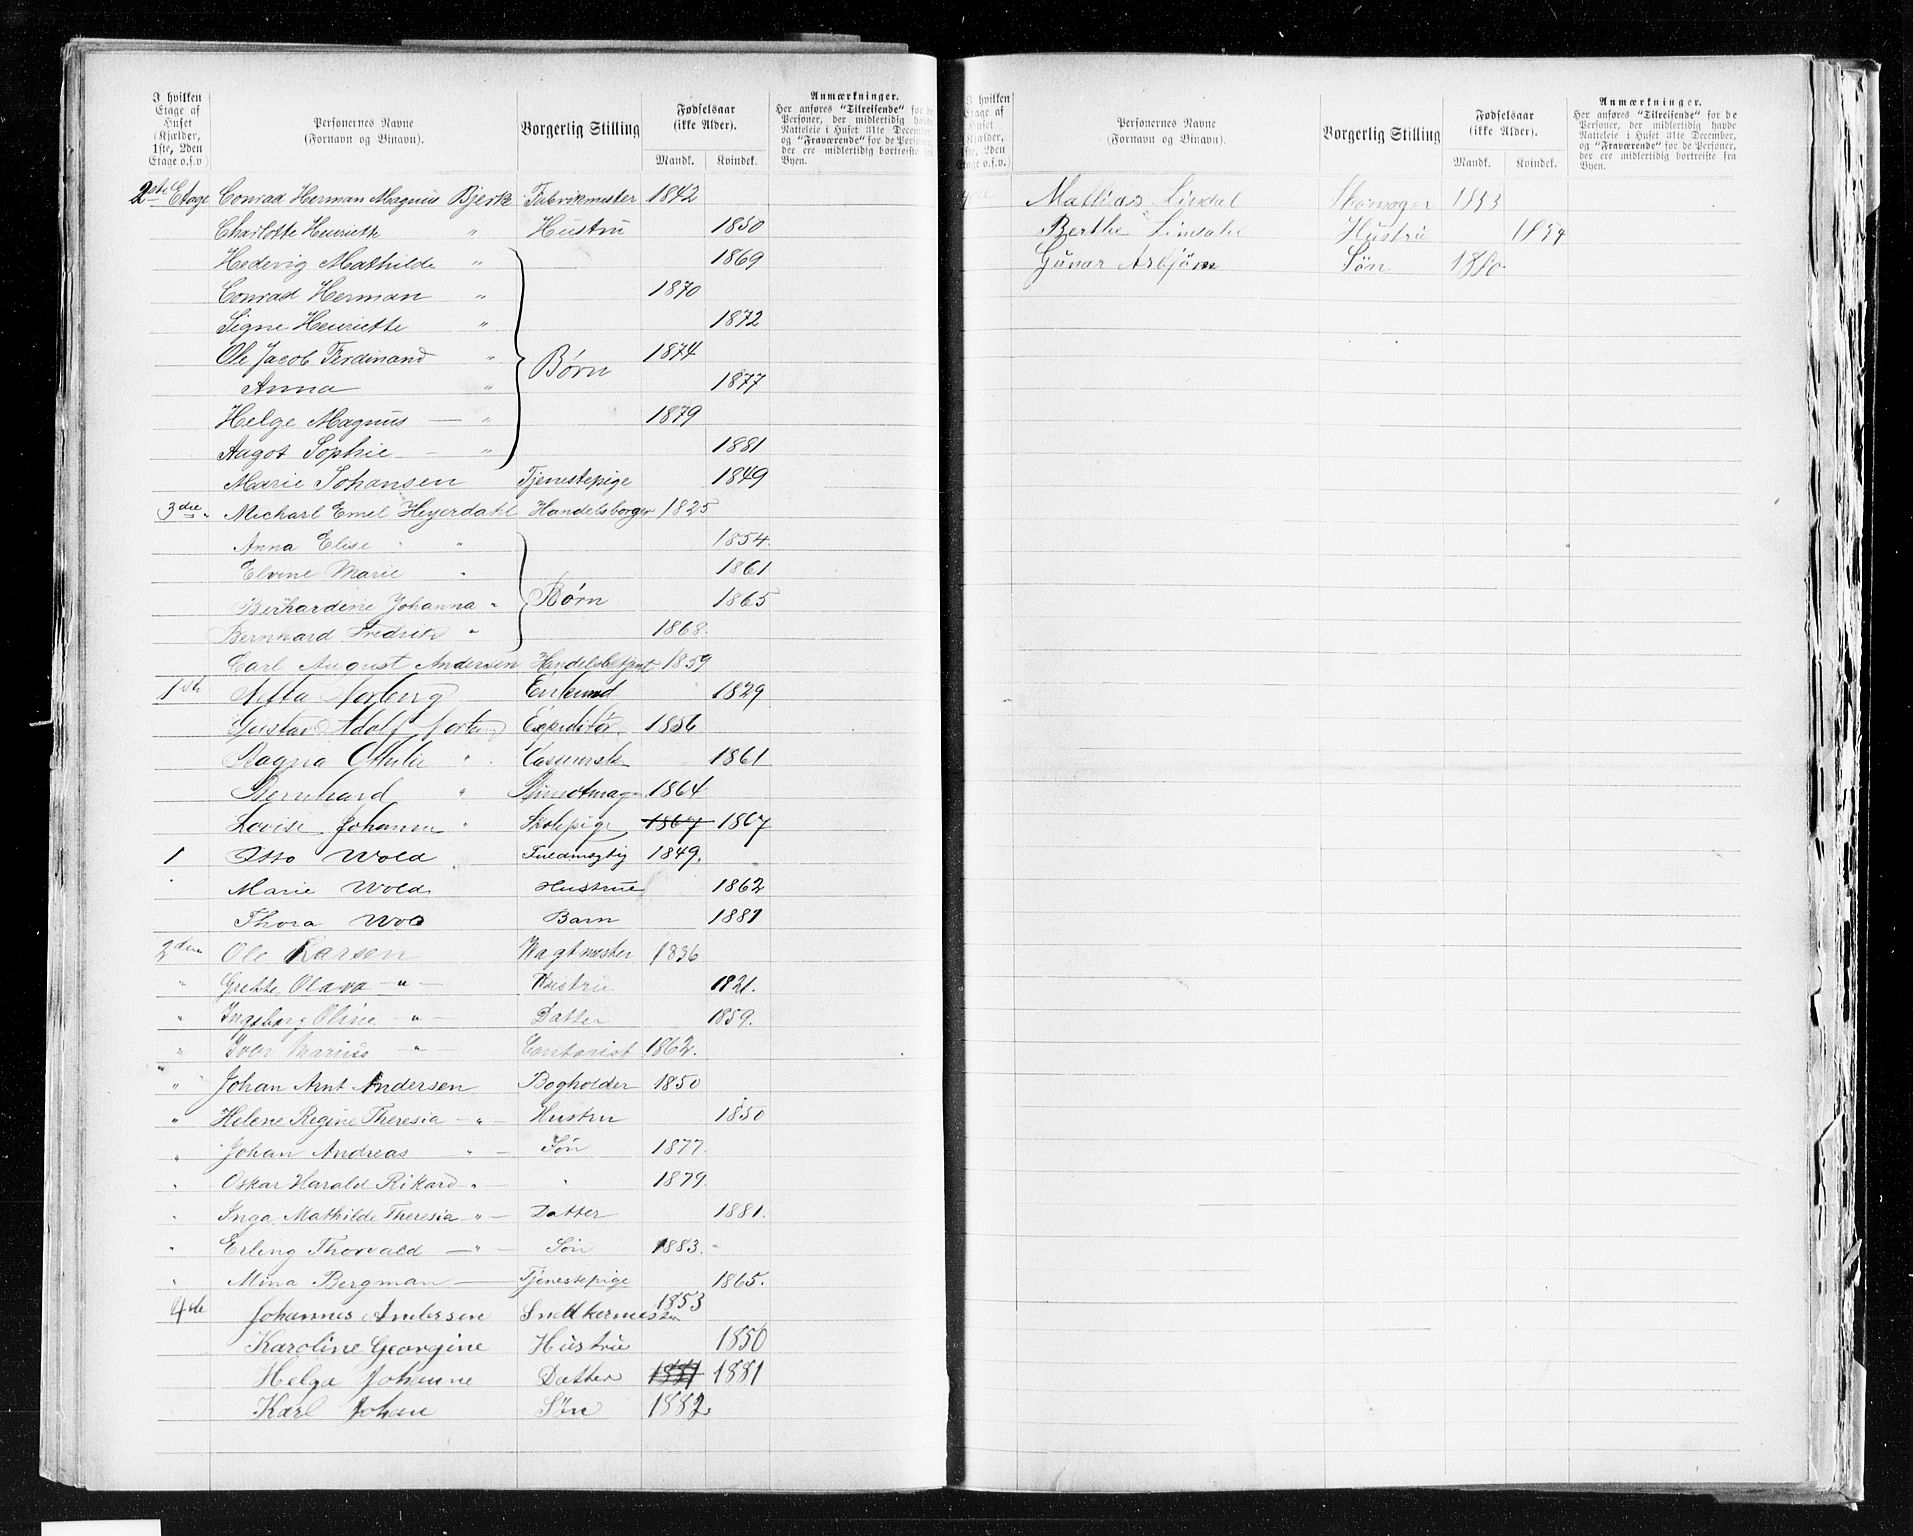 I hvilken Etage af Huset (Kjælder, 1ste, 2den Etage o.s.v.) Personernes Navne (Fornavn og Binavn). Borgerlig Stilling Fødselsaar (ikke Alder). Mandk. Kvindek. Anmærkninger. Her anføres "Tilreisende" for de Personer, der midlertidig havde Natteleie i Huset 31te December, og "Fraværende" for de Personer, der ere midlertidig bortreiste fra Byen.
2den Etage Conrad Herman Magnus Bjerke Fabrikmester 1842
Charlotte Henriette " Hustru 1850
Hedevig Mathilde " 1869
Conrad Herman " 1870
Signe Henriette " 1872
Ole Jacob Ferdinand " Børn 1874
Anna " 1877
Helge Magnus — " 1879
Aagot Sophie — " 1881
Marie Johansen Tjenestepige 1849
3die " Michael Emil Heyerdahl Handelsborger 1825
Anna Elise " " 1854
Elvine Marie " 1861
Berhardine Johanna " Børn 1865
Bernhard Fredrik " 1868.
Carl August Andersen Handelsbetjent 1859
1ste Norberg Enkemd 1829
Gustav Adolf Norberg Expeditør. 1856
Ragna Othilie " Casserske 1861
Bernhard " 1864
Lovise Johanne " Skolepige 1867 1867
1 Otto Wold Fuldmegtig 1849.
" Marie Wold Hustrue 1862
Thora Wold Barn 1881
2den Ole Larsen Vagtmester 1836
" Grethe Olava — " — Hustru 1821.
" Ingeborg Oline — " — Datter 1859.
" Iver Marius — " — Contorist 1862.
" Johan Arnt Andersen Bogholder 1850
" Helene Regine Theresia — " — Hustru 1850
" Johan Andreas " — Søn 1877
" Oskar Harald Rikard " — " 1879
" Inga Mathilde Theresia " — Datter 1881.
" Erling Thorvald — " — Søn 1883.
" Mina Bergman — Tjenestepige 1865.
4de Johannes Andersen Snedkermester 1853
Karoline Georgine Hustru 1850
Helga Johanne Datter 1881 1881
Karl Johan Søn 1882.
I hvilken Etage af Huset (Kjælder, 1ste, 2den Etage o.s.v.) Personernes Navne (Fornavn og Binavn). Borgerlig Stilling Fødselsaar (ikke Alder). Mandk. Kvindek. Anmærkninger. Her anføres "Tilreisende" for de Personer, der midlertidig havde Natteleie i Huset 31te December, og "Fraværende" for de Personer, der ere midlertidig bortreiste fra Byen.
Mathias Lindal Skomager 1853
Berthe Hustru 1854
Gunar Asbjørn Søn 1880.